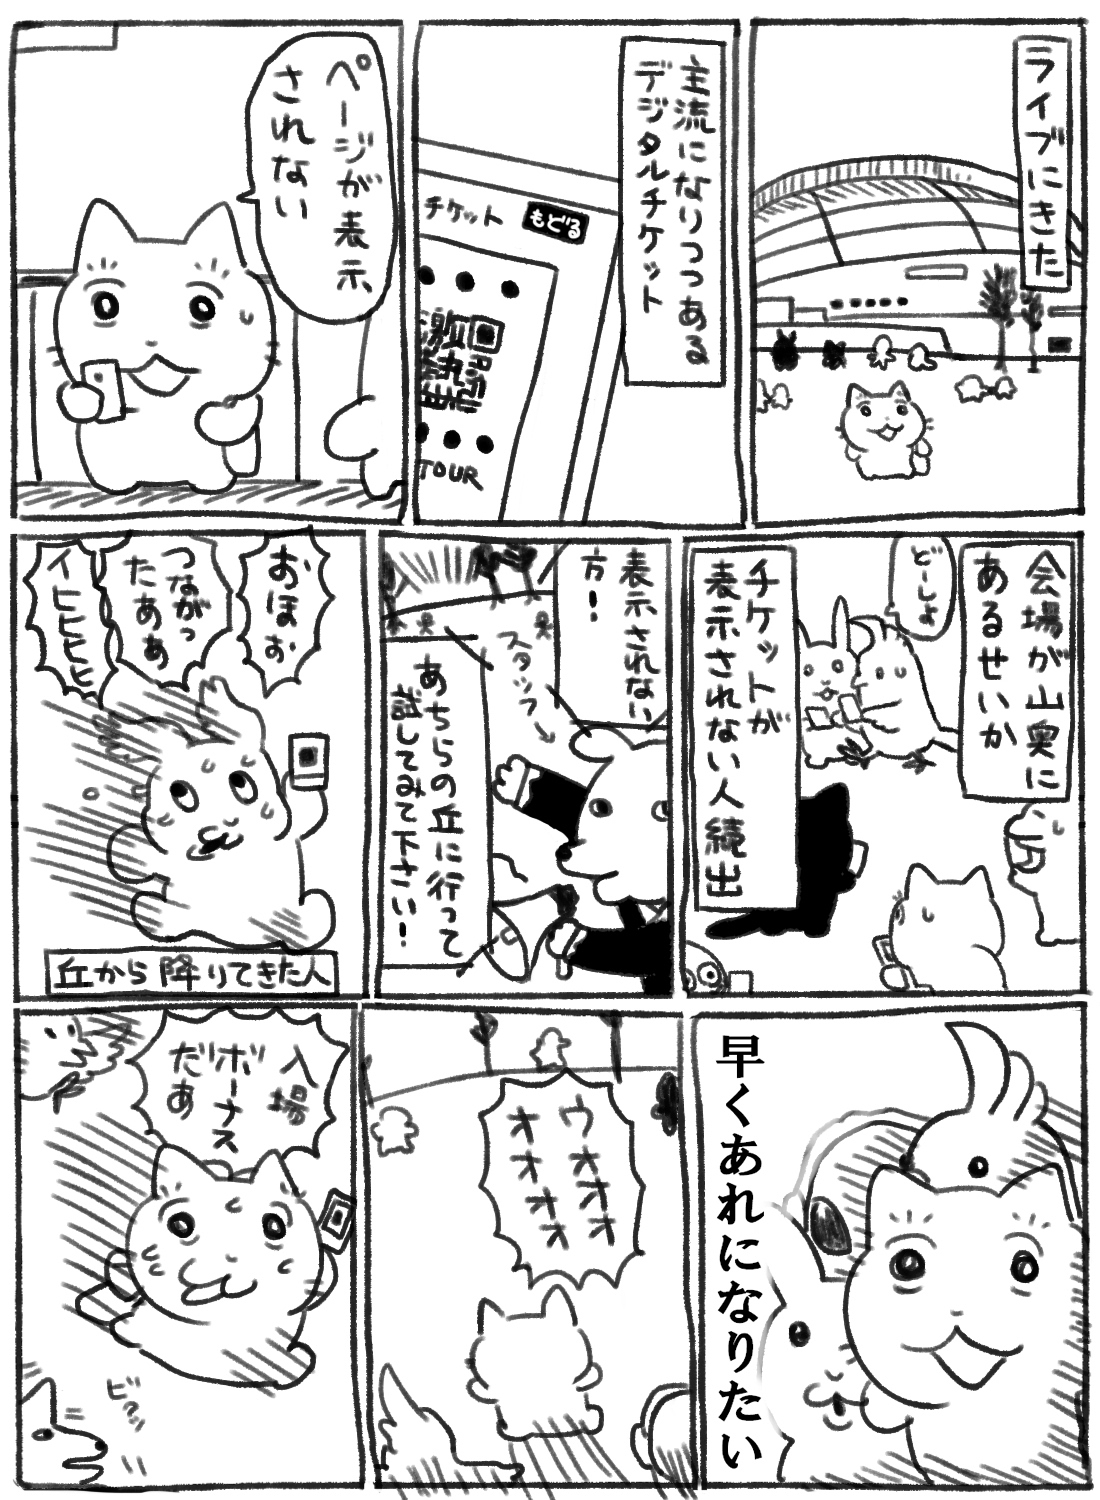 ライブにきた
主流になりつつある
デジタルチケット
チケット
もどる
TOUR
ページが表示
されない
会場が山奥に
あるせいか
どーしよ
チケットが
表示されない人続出
表示されない
方！
スタッフ
あちらの丘に行って
試してみて下さい！
おほぉ
つながっ
たああ
イヒヒヒヒ
丘から降りてきた人
早くあれになりたい
ウオオオ
オオオオ
入場
ボーナス
だあ
ピァッ